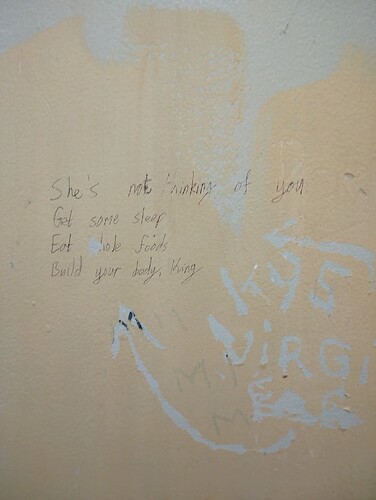 She's not thinking of you
Get some sleep
Eat whole foods
Build your body, King
KYS
VIRGI